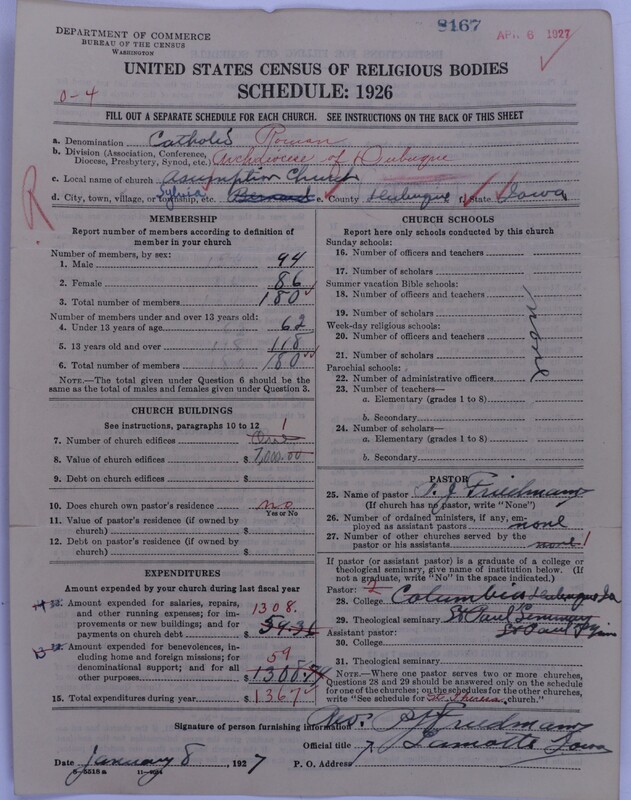 8167
APR 6 1927
DEPARTMENT OF COMMERCE
BUREAU OF THE CENSUS
WASHINGTON
UNITED STATES CENSUS OF RELIGIOUS BODIES
SCHEDULE: 1926
0-4
FILL OUT A SEPARATE SCHEDULE FOR EACH CHURCH. SEE INSTRUCTIONS ON THE BACK OF THIS SHEET
a. Denomination Catholic Roman
b. Division (Association, Conference, Diocese, Presbytery, Synod, etc.) Archdiocese of Dubuque
c. Local name of church Assumption Church
d. City, town, village, or township, etc. Sylvia Bernard e. County Dubuque f. State Iowa
R
MEMBERSHIP
Report number of members according to definition of
member in your church
Number of members, by sex:
1. Male 94
2. Female 86
3. Total number of members 180
Number of members under and over 13 years old:
4. Under 13 years of age 62
5. 13 years old and over 118
6. Total number of members 180
NOTE.—The total given under Question 6 should be
the same as the total of males and females given under Question 3.
CHURCH BUILDINGS
See instructions, paragraphs 10 to 12
7. Number of church edifices One 1
8. Value of church edifices $ 7,000.00
9. Debt on church edifices $
10. Does church own pastor's residence no
Yes or No
11. Value of pastor's residence (if owned by
church) $
12. Debt on pastor's residence (if owned by
church) $
EXPENDITURES
Amount expended by your church during last fiscal year
Amount expended for salaries, repairs,
and other running expenses; for im-
provements or new buildings; and for
payments on church debt $ 1308.
Amount expended for benevolences, in-
cluding home and foreign missions; for
denominational support; and for all
other purposes $ 59
1308.54
15. Total expenditures during year $ 1367
CHURCH SCHOOLS
Report here only schools conducted by this church
Sunday schools:
16. Number of officers and teachers
17. Number of scholars
Summer vacation Bible schools:
18. Number of officers and teachers
19. Number of scholars
Week-day religious schools:
20. Number of officers and teachers
21. Number of scholars
Parochial schools:
22. Number of administrative officers
23. Number of teachers—
a. Elementary (grades 1 to 8)
b. Secondary
24. Number of scholars—
a. Elementary (grades 1 to 8)
b. Secondary
none
PASTOR
25. Name of pastor Friedmann
(If church has no pastor, write "None")
26. Number of ordained ministers, if any, em-
ployed as assistant pastors none
27. Number of other churches served by the
pastor or his assistants none 1
If pastor (or assistant pastor) is a graduate of a college or
theological seminary, give name of institution below. (If
not a graduate, write "No" in the space indicated.)
Pastor: 2
28. College Columbia Dubuque Ia
29. Theological seminary St Paul Seminary
St Paul Minn
Assistant pastor:
30. College
31. Theological seminary
NOTE.—Where one pastor serves two or more churches,
Questions 28 and 29 should be answered only on the schedule
for one of the churches; on the schedules for the other churches,
write "See schedule for Ste Theresa church."
Signature of person furnishing information Rev. Friedmann
Official title
Lamotte Iowa
Date January 8, 1927 P. O. Address
8-5518 a